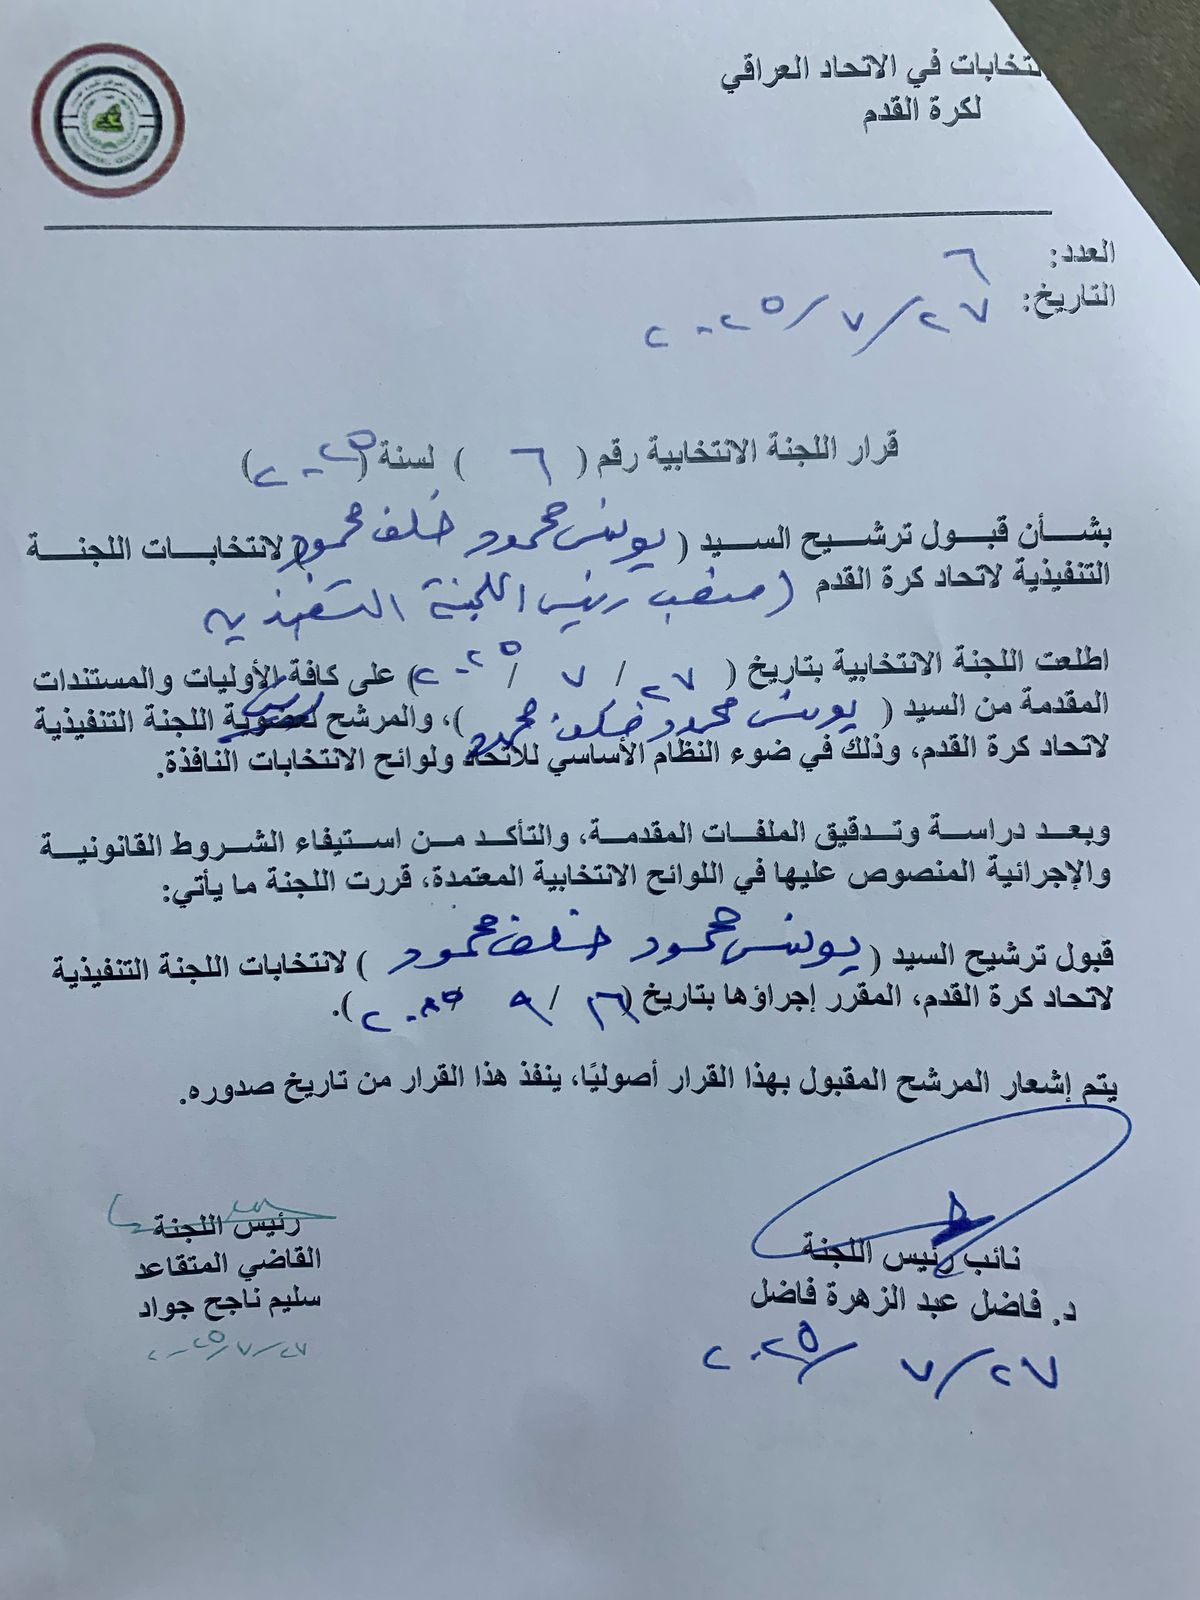 نتخابات في الاتحاد العراقي
لكرة القدم
العدد: ٦
التاريخ: ٢٧/٧/٢٠٢٥
قرار اللجنة الانتخابية رقم ( ٦ ) لسنة (٢٠٢٥)
بشأن قبول ترشيح السيد ( يونس محمود خلف محمود) لانتخابات اللجنة
التنفيذية لاتحاد كرة القدم ( منصب رئيس اللجنة التنفيذية
اطلعت اللجنة الانتخابية بتاريخ ( ٢٧ / ٧ / ٢٠٢٥) على كافة الأوليات والمستندات
المقدمة من السيد ( يونس محمود خلف محمود)، والمرشح لعضوية اللجنة التنفيذية
لاتحاد كرة القدم، وذلك في ضوء النظام الأساسي للاتحاد ولوائح الانتخابات النافذة.
وبعد دراسة وتدقيق الملفات المقدمة، والتأكد من استيفاء الشروط القانونية
والإجرائية المنصوص عليها في اللوائح الانتخابية المعتمدة، قررت اللجنة ما يأتي:
قبول ترشيح السيد ( يونس محمود خلف محمود ) لانتخابات اللجنة التنفيذية
لاتحاد كرة القدم، المقرر إجراؤها بتاريخ ( / ٩ ٢٠٢٥).
يتم إشعار المرشح المقبول بهذا القرار أصوليًا، ينفذ هذا القرار من تاريخ صدوره.
نائب رئيس اللجنة
د. فاضل عبد الزهرة فاضل
٢٧/٧/٢٠٢٥
رئيس اللجنة
القاضي المتقاعد
سليم ناجح جواد
٢٧/٧/٢٠٢٥